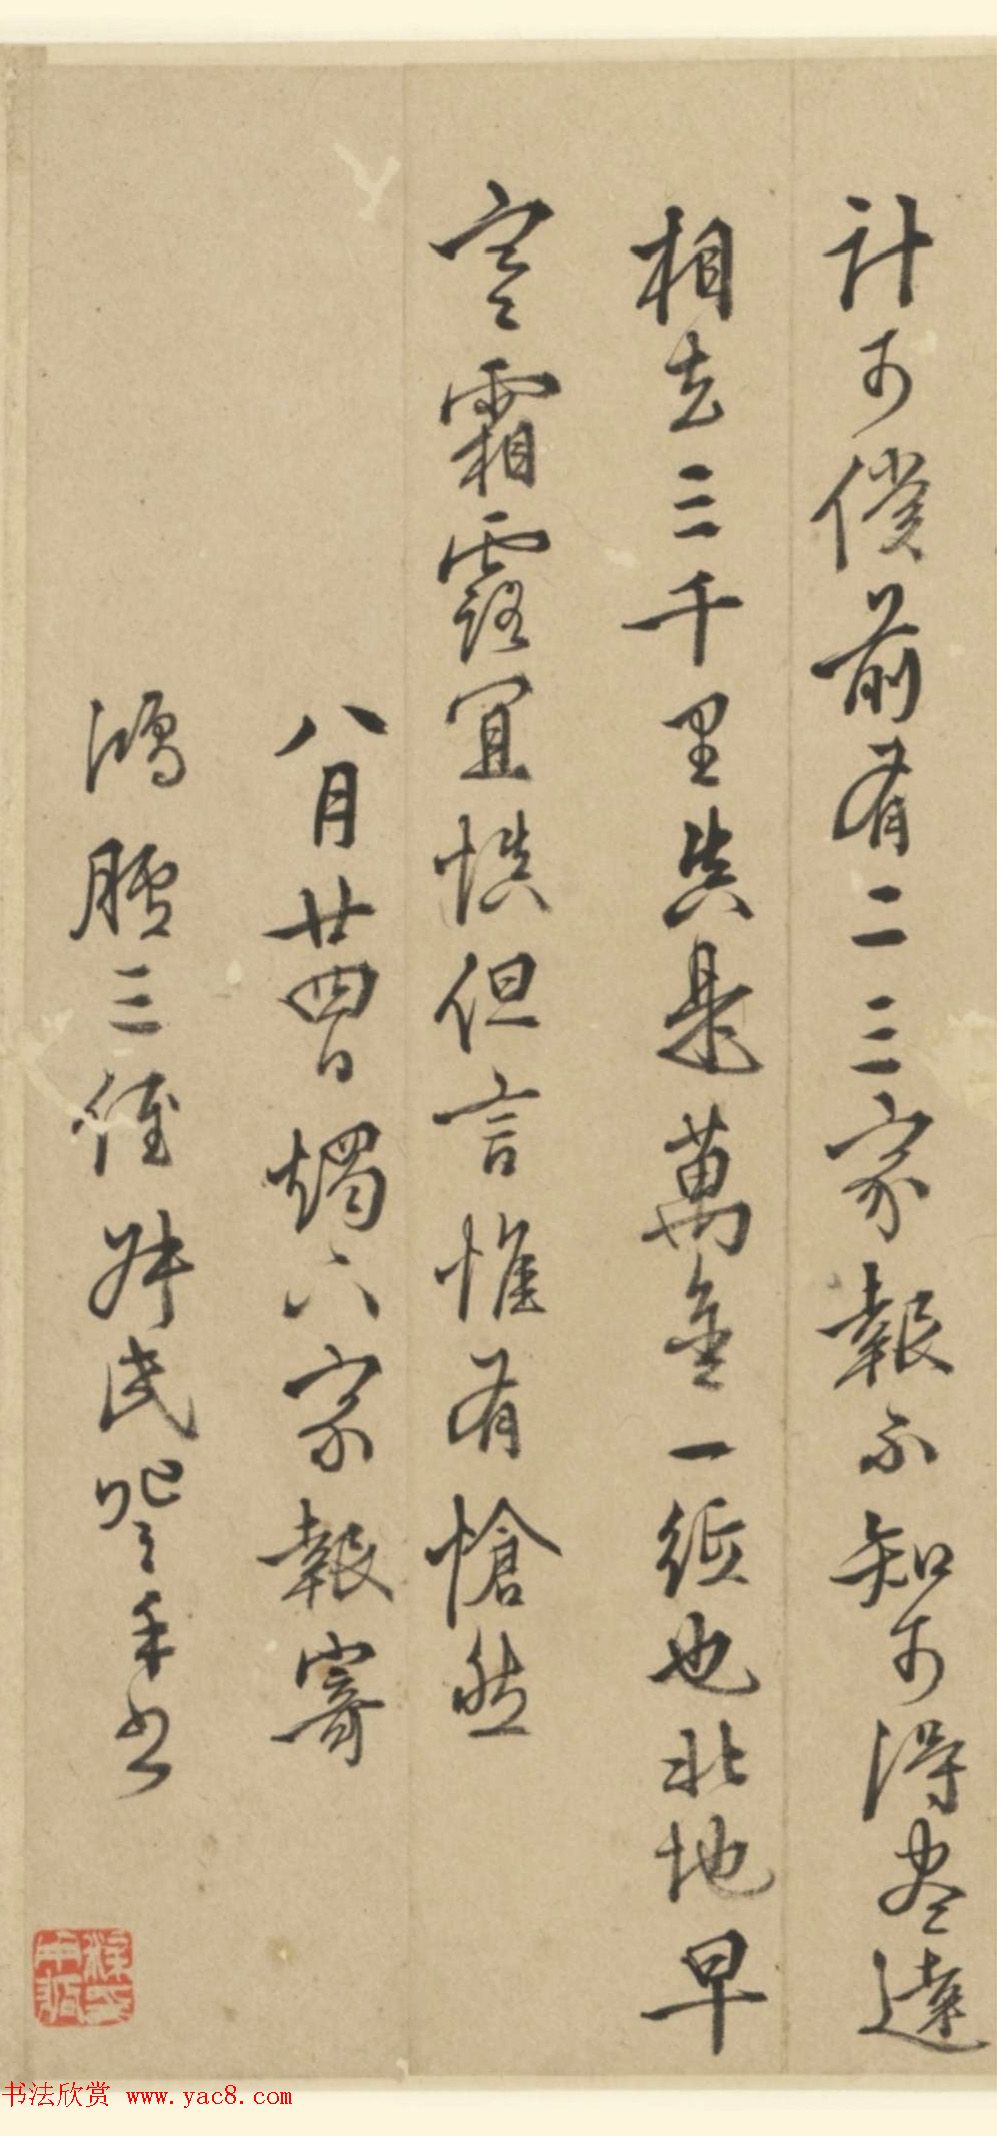 計可僕前有二三家報不知可得盡達
相去三千里真是萬金一紙也北地早
寒霜露宜慎但言惟有愴然
八月廿四日燭下家報寄
鴻臚三侄 民望手書
书法欣赏 www.yac8.com